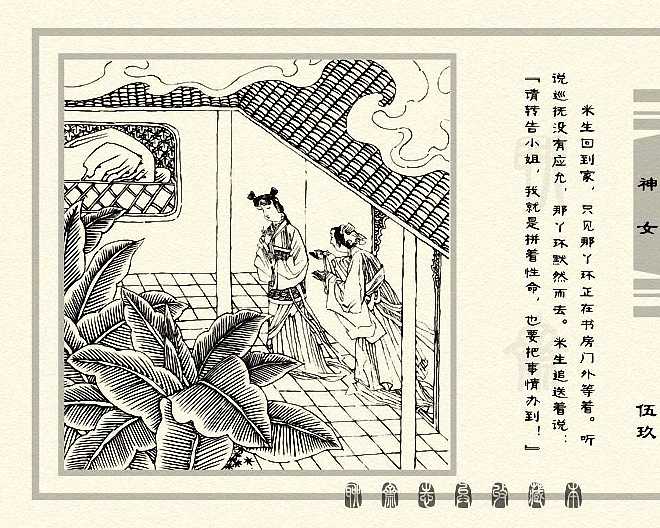 神女
伍玖
米生回到家，只见那丫环正在书房门外等着。听
说巡抚没有应允，那丫环默然而去。米生追送着说：
『请转告小姐，我就是拼着性命，也要把事情办到！』